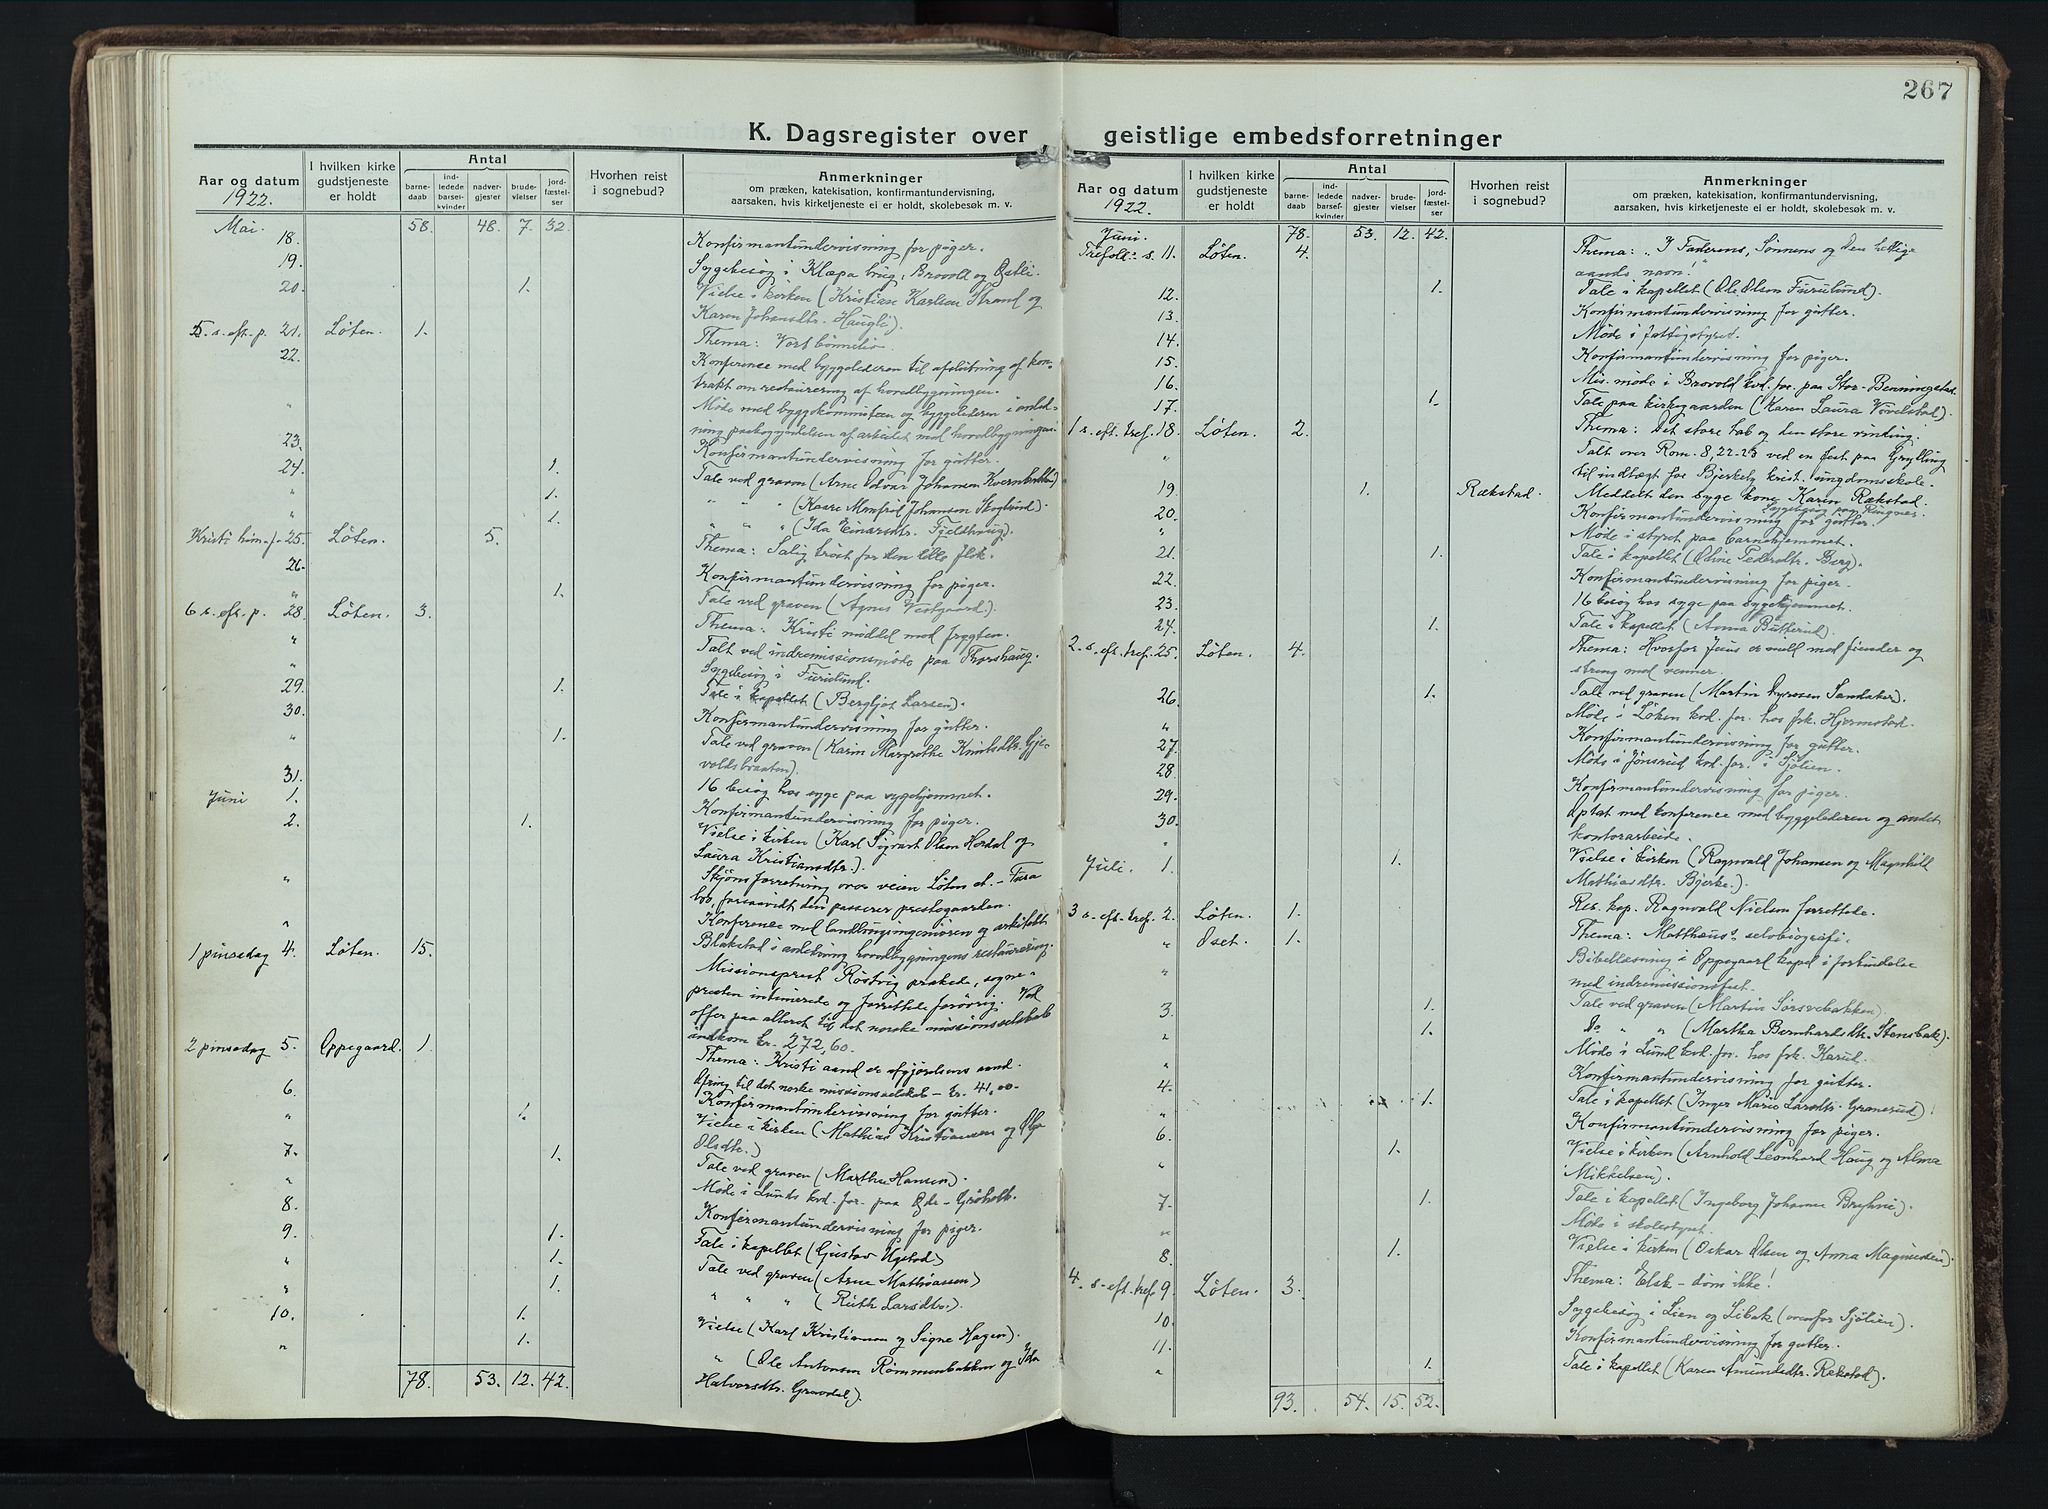 267
K. Dagsregister over geistlige embedsforretninger
Aar og datum
1922.
I hvilken kirke
gudstjeneste
er holdt
Antal
barne-
daab
ind-
ledede
barsel-
kvinder
nadver-
gjester
brude-
vielser
jord-
fæstel-
ser
Hvorhen reist
i sognebud?
Anmerkninger
om præken, katekisation, konfirmantundervisning,
aarsaken, hvis kirketjeneste ei er holdt, skolebesøk m. v.
Mai. 58. 48. 7. 32.
18. Konfirmantundervisning for piger.
19. Sygebesøg i Klæpa brug, Brovoll og Østli.
20. 1. Vielse i kirken (Kristian Karlsen Strand og
Karen Johansdtr. Haugli).
5. s. eft. p. 21. Løten. 1. Thema: Vort bønneliv.
22. Konferense med byggelederen til afslutning af kon-
trakt om restaurering af hovedbygningen.
" Møde med byggekomiteen og byggelederen i anled-
ning paabegyndelsen af arbeidet med hovedbygningen.
23. Konfirmantundervisning for gutter.
24. 1. Tale ved graven (Arne Odvar Johansen
" 1. " " " (Kaare Manfred Johansen Skoglund).
" 1. " " " (Ida Einarsdtr. Fjeldhaug).
Kristi him.f. 25. Løten. 5. Thema: Salig trøst for den lille flok.
26. Konfirmantundervisning for piger.
" 1. Tale ved graven (Agnes Vestgaard).
6 s. eft. p. 28. Løten. 3. Thema: Kristi middel mod frygten.
" Talt ved indremissionsmøde paa Thorshaug.
" Sygebesøg i Furulund.
29. 1. Tale i kapellet (Bergljot Larsen).
30. Konfirmantundervisning for gutter.
" 1. Tale ved graven (Karin Margrethe Knutsdtr. Gje-
voldsbraaten).
31. 16 besøg hos syge paa sygehjemmet.
Juni 1. Konfirmantundervisning for piger.
2. 1. Vielse i kirken (Karl Sigvart Olsen Hordal og
Laura Kristiansdtr.).
" Skjønsforretning over veien Løten st. - Fura
bro, forsaavidt den passerer prestegaarden.
" Konferense med landbrugsingeniøren og arkitekt
Blakstad i anledning hovedbygningens restaurering.
1 pinsedag 4. Løten. 15. Missionsprest Røstvig prækede, sogne-
presten intimerede og forrettede forøvrig. Ved
offer paa alteret til det norske missionsselskab
indkom kr. 272,60.
2 pinsedag 5. Oppegaard. 1. Thema: Kristi aand er afgjørelsens aand.
Ofring til det norske missionsselskab - kr. 41,00.
6. Konfirmantundervisning for gutter.
" 1. Vielse i kirken (Mathias Kristiansen og Olga
Olsdtr.)
7. 1. Tale ved graven (Marthe Hansen).
" Møde i Lunds kvd. for. paa Grøholt.
8. Konfirmantundervisning for piger.
9. 1. Tale i kapellet (Gustav Ugstad)
" 1. Tale ved graven (Arne Mathiassen)
" 1. " " " (Ruth Larsdtr.).
10. 1. Vielse (Karl Kristiansen og Signe Hagen).
" 1. " (Ole Antonsen Rømmenbakken og Ida
Halvorsdtr. Gravdal).
78. 53. 12. 42.
Aar og datum
1922.
I hvilken kirke
gudstjeneste
er holdt
Antal
barne-
daab
ind-
ledede
barsel-
kvinder
nadver-
gjester
brude-
vielser
jord-
fæstel-
ser
Hvorhen reist
i sognebud?
Anmerkninger
om præken, katekisation, konfirmantundervisning,
aarsaken, hvis kirketjeneste ei er holdt, skolebesøk m. v.
Juni. 78. 53. 12. 42.
Trefold. s. 11. Løten. 4. Thema: „I Faderens, Sønnens og den hellige
aands navn."
12. 1. Tale i kapellet (Ole Olsen Furulund).
13. Konfirmantundervisning for gutter.
14. Møde i fattigstyret.
15. Konfirmantundervisning for piger.
16. Mis. møde i Brovold kvd. for. paa Stor-Benningstad.
17. 1. Tale paa kirkegaarden (Karen Laura Vovelstad).
1 s. eft. tref. 18. Løten. 2. Thema: Det store tab og den store vinding.
" Talt over Rom. 8, 22-23 ved en fest paa Grylling
til indtægt for Bjerkely krist. ungdomsskole.
19. 1. Rækstad. Meddelt den syge kone Karen Rækstad.
Sygebesøg paa Ringnes.
20. Konfirmantundervisning for gutter.
" Møde i styret paa barnehjemmet.
21. 1. Tale i kapellet (Oline Pedersdtr. Berg).
22. Konfirmantundervisning for piger.
23. 16 besøg hos syge paa sygehjemmet.
24. 1. Tale i kapellet (Anna Butterud).
2. s. eft. tref. 25. Løten. 4. Thema: Hvorfor Jesus er mild mod fiender og
streng mod venner.
26. 1. Tale ved graven (Martin Syversen Sandaker).
" Møde i Løten kvd. for. hos frk. Hjermstad.
27. Konfirmantundervisning for gutter.
28. Møde i Jønsrud kvd. for. i Sjølien.
29. Konfirmantundervisning for piger.
30. Optat med konferense med byggelederen og andet
kontorarbeide.
Juli. 1. 1. Vielse i kirken (Ragnvald Johansen og Magnhild
Mathiasdtr. Bjerke.).
3 s. eft. tref. 2. Løten. 1. Res. kap. Ragnvald Nielsen forrettede.
" Øset. 1. Thema: Matthæus' selvbiografi.
" Bibellæsning i Oppegaard kapel i forbindelse
med indremissionsfest.
3. 1. Tale ved graven (Martin Sørsvebakken).
" 1. Do " " (Martha Bernhardsdtr. Stensbak).
" Møde i Lund kvd. for. hos frk. Karud.
4. Konfirmantundervisning for gutter.
" 1. Tale i kapellet (Inger Marie Larsdtr. Granerud).
6. Konfirmantundervisning for piger.
" 1. Vielse i kirken (Arnhold Leonhard Haug og Alma
Mikkelsen).
7. 1. Tale i kapellet (Ingeborg Johanne
" Møde i skolestyret.
8. 1. Vielse i kirken (Oskar Olsen og Anna Magnussen).
4. s. eft. tref. 9. Løten. 3. Thema: Elsk - døm ikke!
10. Sygebesøg i Lien og Libak (ovenfor Sjølien).
11. Konfirmantundervisning for gutter.
" 1. Tale i kapellet (Karen Amundsdtr. Rækstad).
93. 54. 15. 52.